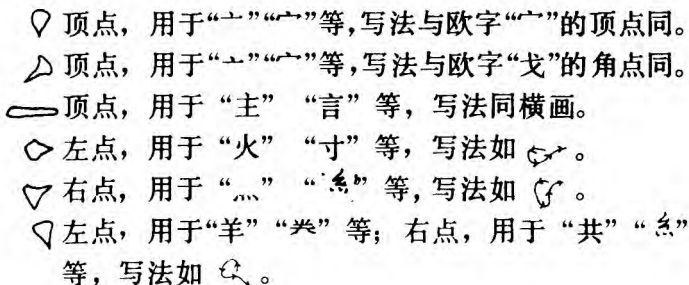 顶点，用于“亠”“宀”等，写法与欧字“宀”的顶点同。
顶点，用于“亠”“宀”等，写法与欧字“戈”的角点同。
顶点，用于“主”“言”等，写法同横画。
左点，用于“火”“寸”等，写法如 。
右点，用于“灬”“糹”等，写法如 。
左点，用于“羊”“”等；右点，用于“共”“糹”
等，写法如 。